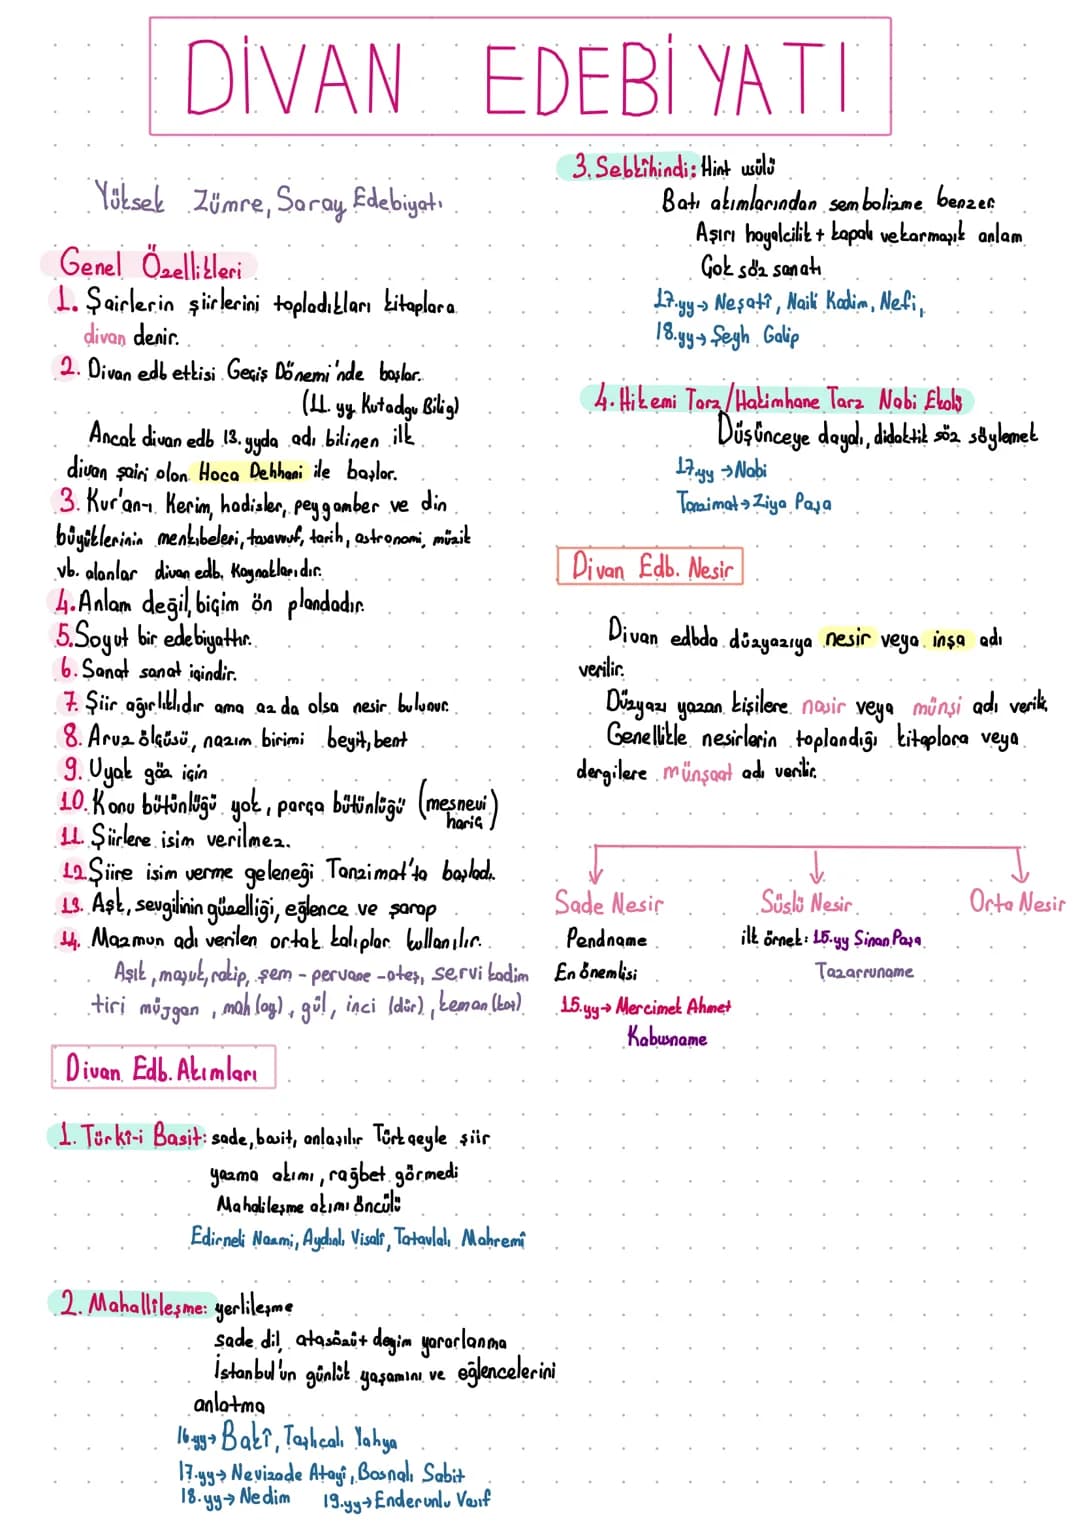 DİVAN EDEBİYATI
Yüksek Zümre, Saray Edebiyatı
Genel Özellikleri
1. Şairlerin şiirlerini topladıkları kitaplara
divan denir.
2. Divan edb etkisi Geçiş Dönemi'nde başlar.
(11. yy. Kutadgu Bilig)
Ancak divan edb 13. yyda adı bilinen ilk
divan şairi olan Hoca Dehhani ile başlar.
3. Kur'an-ı Kerim, hadisler, peygamber ve din
büyüklerinin menkıbeleri, tasavvuf, tarih, astronomi, müzik
vb. alanlar divan edb. Kaynaklarıdır.
4. Anlam değil, biçim ön plandadır.
5. Soyut bir edebiyattır.
6. Sanat sanat içindir.
7. Şiir ağırlıklıdır ama az da olsa nesir bulunur.
8. Aruz ölçüsü, nazım birimi beyit, bent
9. Uyak göz için
10. Konu bütünlüğü yok, parça bütünlüğü (mesnevi
hariç)
11. Şiirlere isim verilmez.
12. Şiire isim verme geleneği Tanzimat'ta başladı.
13. Aşk, sevgilinin güzelliği, eğlence ve şarap
14. Mazmun adı verilen ortak kalıplar kullanılır.
Aşık, maşuk, rakip, şem - pervane - ateş, servi kadim
tiri müjgan, mah (ay), gül, inci (dür), keman (kaş)
Divan Edb. Akımları
1. Türkî-i Basit: sade, basit, anlaşılır Türkçeyle şiir
yazma akımı, rağbet görmedi
Mahallileşme akımı öncülü
Edirneli Nazmi, Aydınlı Visali, Tatavlalı Mahremî
2. Mahallîleşme: yerlileşme
sade dil, atasözü + deyim yararlanma
İstanbul'un günlük yaşamını ve eğlencelerini
anlatma
16.yy→ Bakî, Taşlıcalı Yahya
17.yy→ Nevizade Atayî, Bosnalı Sabit
18.yy→ Nedim 19.yy→ Enderunlu Vasıf
3. Sebkîhindi: Hint usülü
Batı akımlarından sembolizme benzer.
Aşırı hayalcilik + kapalı ve karmaşık anlam
Çok söz sanatı
17.yy→ Neşatî, Naili Kadim, Nefi,
18.yy→ Şeyh Galip
4. Hikemi Tarz/Hakimhane Tarz Nabi Ekolü
Düşünceye dayalı, didaktik söz söylemek
17.yy→Nabi
Tanzimat→Ziya Paşa
Divan Edb. Nesir
Divan edbda düzyazıya nesir veya inşa adı
verilir.
Düzyazı yazan kişilere nasir veya münşi adı verilir.
Genellikle nesirlerin toplandığı kitaplara veya
dergilere münşaat adı verilir.
Sade Nesir Süslü Nesir Orta Nesir
Pendname ilk örnek: 15.yy Sinan Paşa
En önemlisi Tazarruname
15.yy→ Mercimek Ahmet
Kabusname